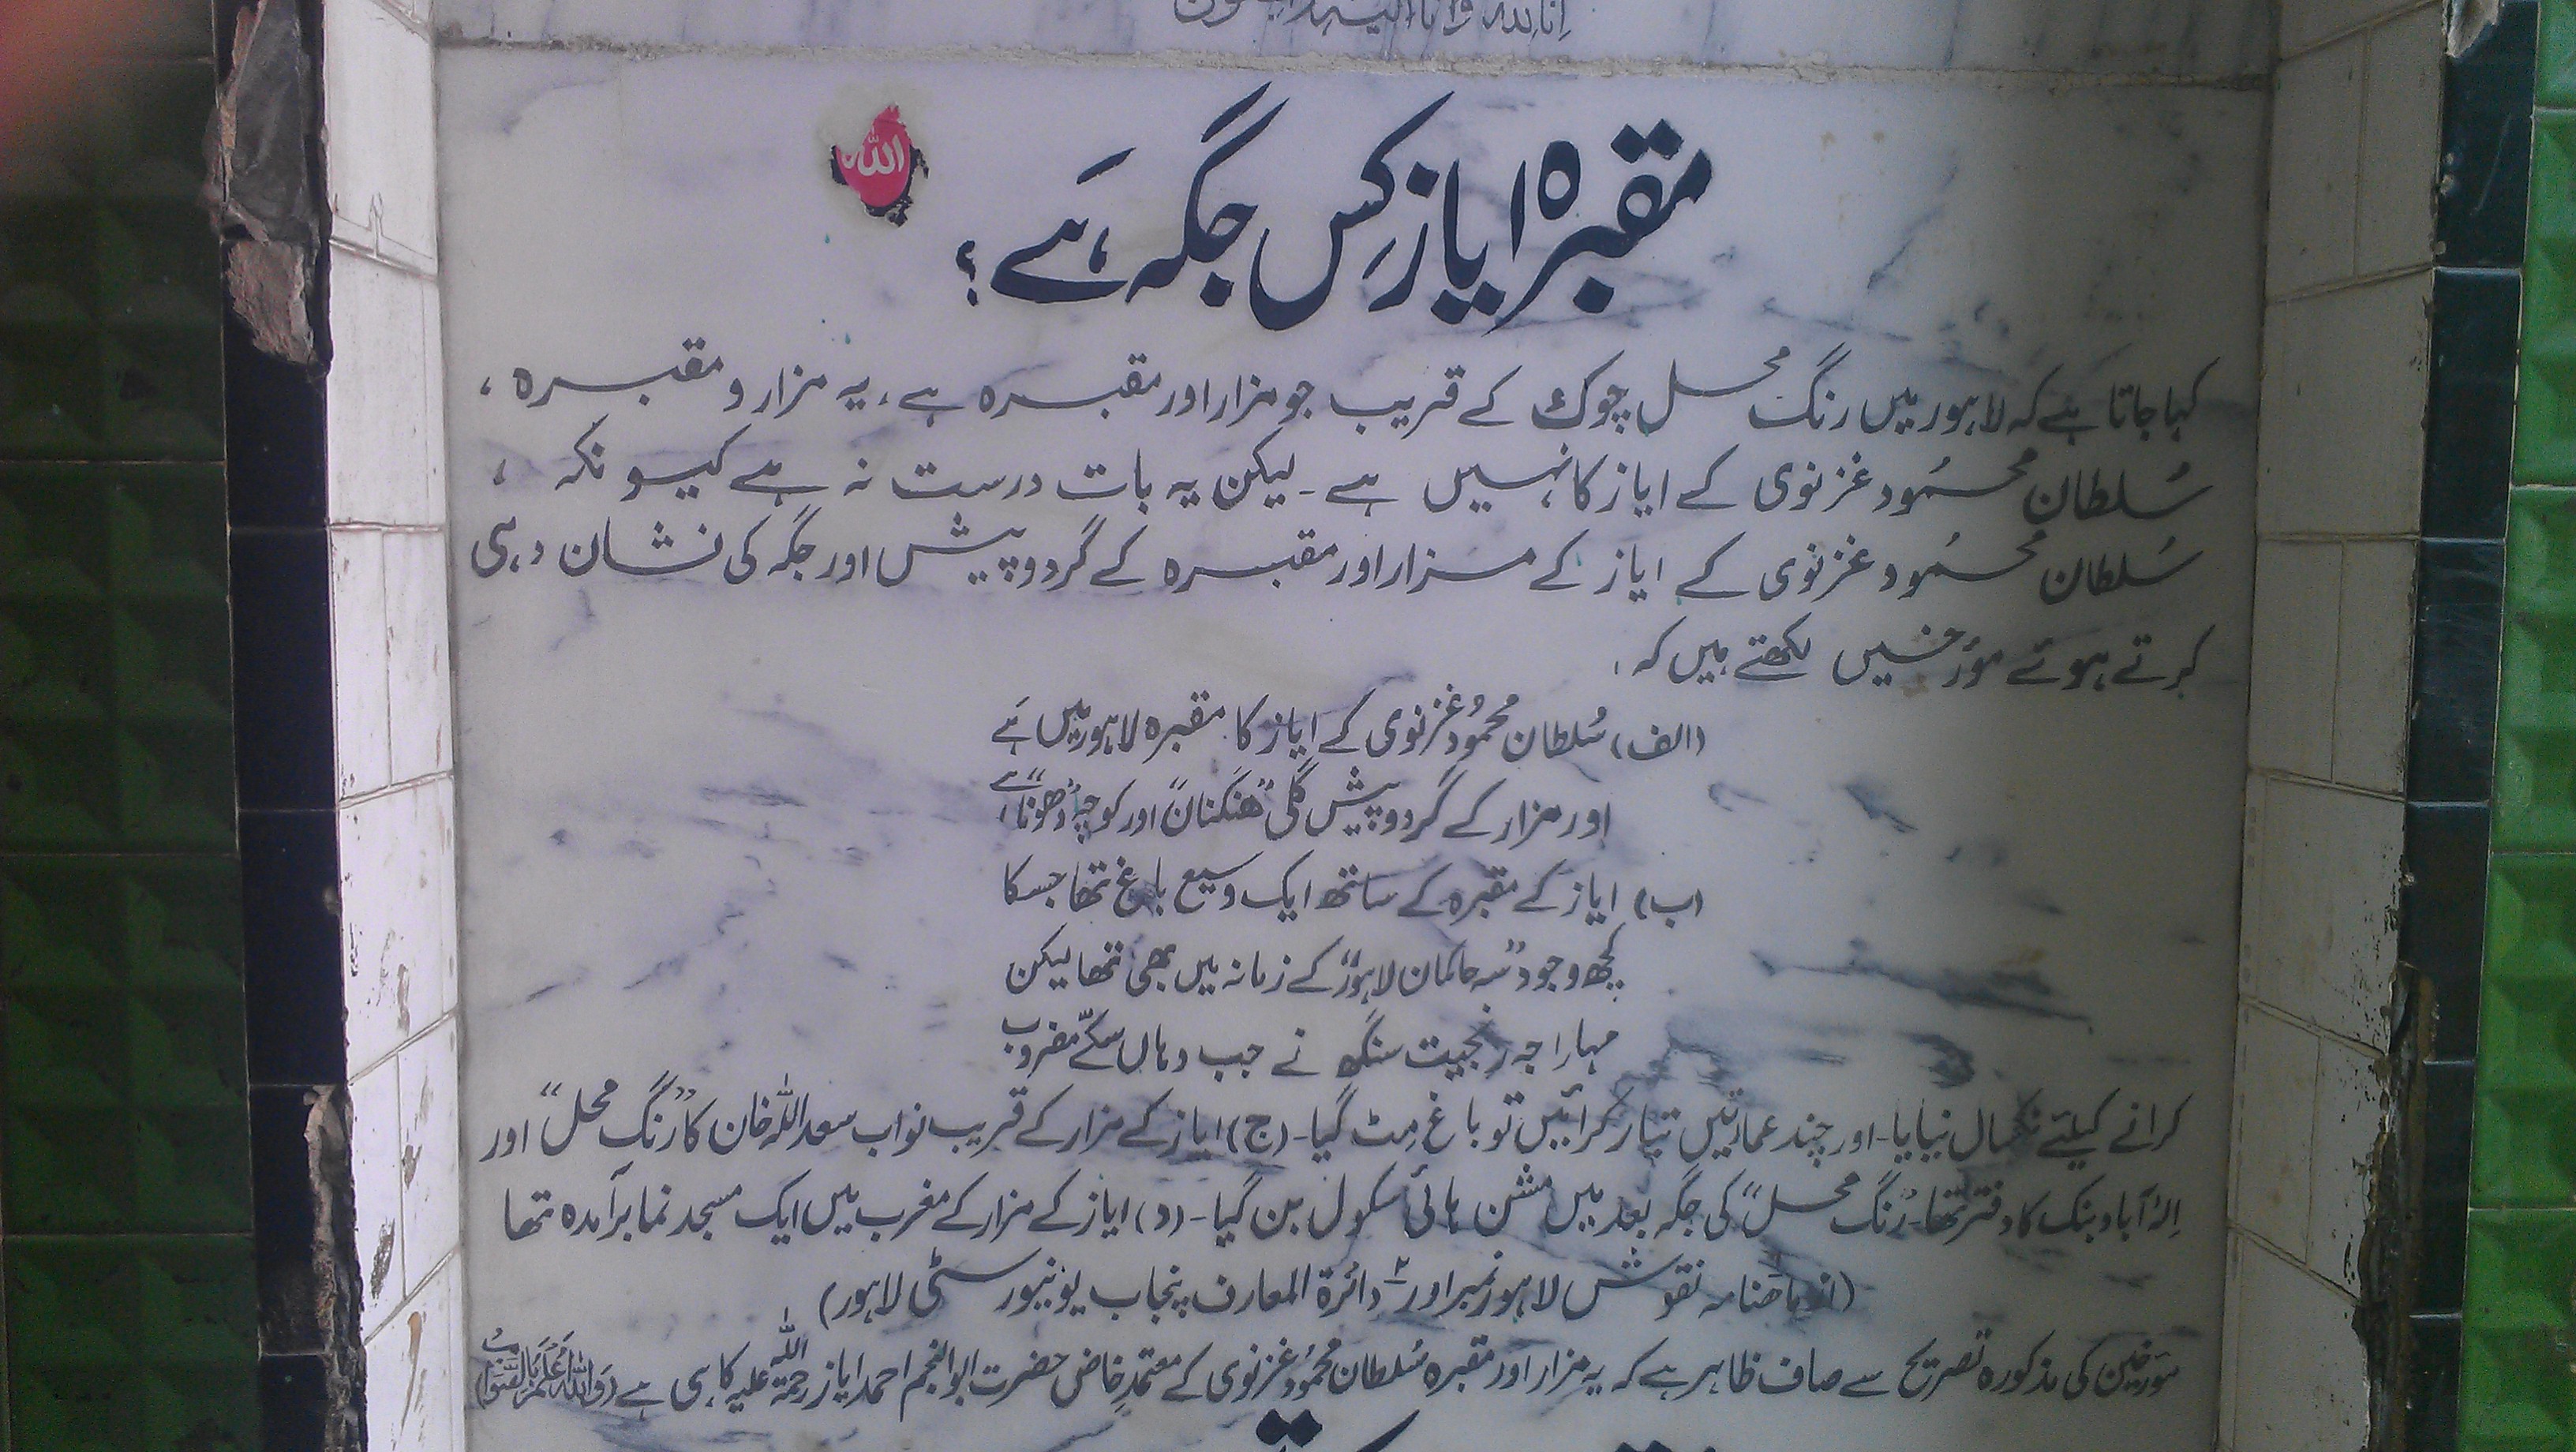 انا للہ وانا الیہ راجعون
اللہ
مقبرہ ایاز کِس جگہ ہَے؟
کہا جاتا ہے کہ لاہور میں رنگ محل چوک کے قریب جو مزار اور مقبرہ ہے، یہ مزار و مقبرہ،
سُلطان محمُود غزنوی کے ایاز کا نہیں ہے ۔ لیکن یہ بات درست نہ ہے کیونکہ،
سُلطان محمُود غزنوی کے ایاز کے مزار اور مقبرہ کے گرد و پیش اور جگہ کی نشان دہی
کرتے ہوئے مؤرخین لکھتے ہیں کہ۔
(الف) سُلطان محمُود غزنوی کے ایاز کا مقبرہ لاہور میں ہَے
اور مزار کے گرد و پیش گلی "ھنگنان" اور کوچہ "دھونا" ہے
(ب) ایاز کے مقبرہ کے ساتھ ایک وسیع باغ تھا جسکا
کچھ وجود "سہ حاکمان لاہور" کے زمانہ میں بھی تھا لیکن
مہاراجہ رنجیت سنگھ نے جب وہاں سکّے مضروب
کرانے کیلئے ٹکسال بنایا۔ اور چند عمارتیں تیار کرائیں تو باغ مِٹ گیا۔ (ج) ایاز کے مزار کے قریب نواب سعد اللہ خان کا "رنگ محل" اور
اِلہٰ آباد بنک کا دفتر تھا۔ "رنگ محل" کی جگہ بعد میں مشن ہائی سکول بن گیا۔ (د) ایاز کے مزار کے مغرب میں ایک مسجد نما برآمدہ تھا
(از ماھنامہ نقوش لاہور نمبر اور ۲ دائرۃ المعارف پنجاب یونیورسٹی لاہور)
مورخین کی مذکورہ تصریح سے صاف ظاہر ہے کہ یہ مزار اور مقبرہ سُلطان محمُود غزنوی کے معتمدِ خاص حضرت ابو النجم احمد ایاز رحمۃ اللہ علیہ کا ہی ہے (وَاللہُ اَعْلَمُ بِالصَّوَابُ)